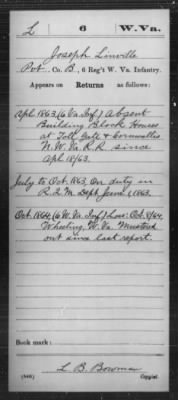 L 6 W.Va.
Joseph Linville
Pvt., Co. B, 6 Reg't W. Va. Infantry.
Appears on Returns as follows:
Apl. 1863 (6 Va Inf) Absent
Building Block Houses
at Toll Gate & Cornwallis
N.W. Va. R.R. since
Apl. 18/63.
July to Oct. 1863, On duty in
R.Q.M. Dept. June 1, 1863.
Oct. 1864 (6 W. Va. Inf) Loss: Oct. 8/64,
Wheeling, W. Va. Mustered
out since last report.
Book mark:
L. B. Bowman
(546) Copyist.